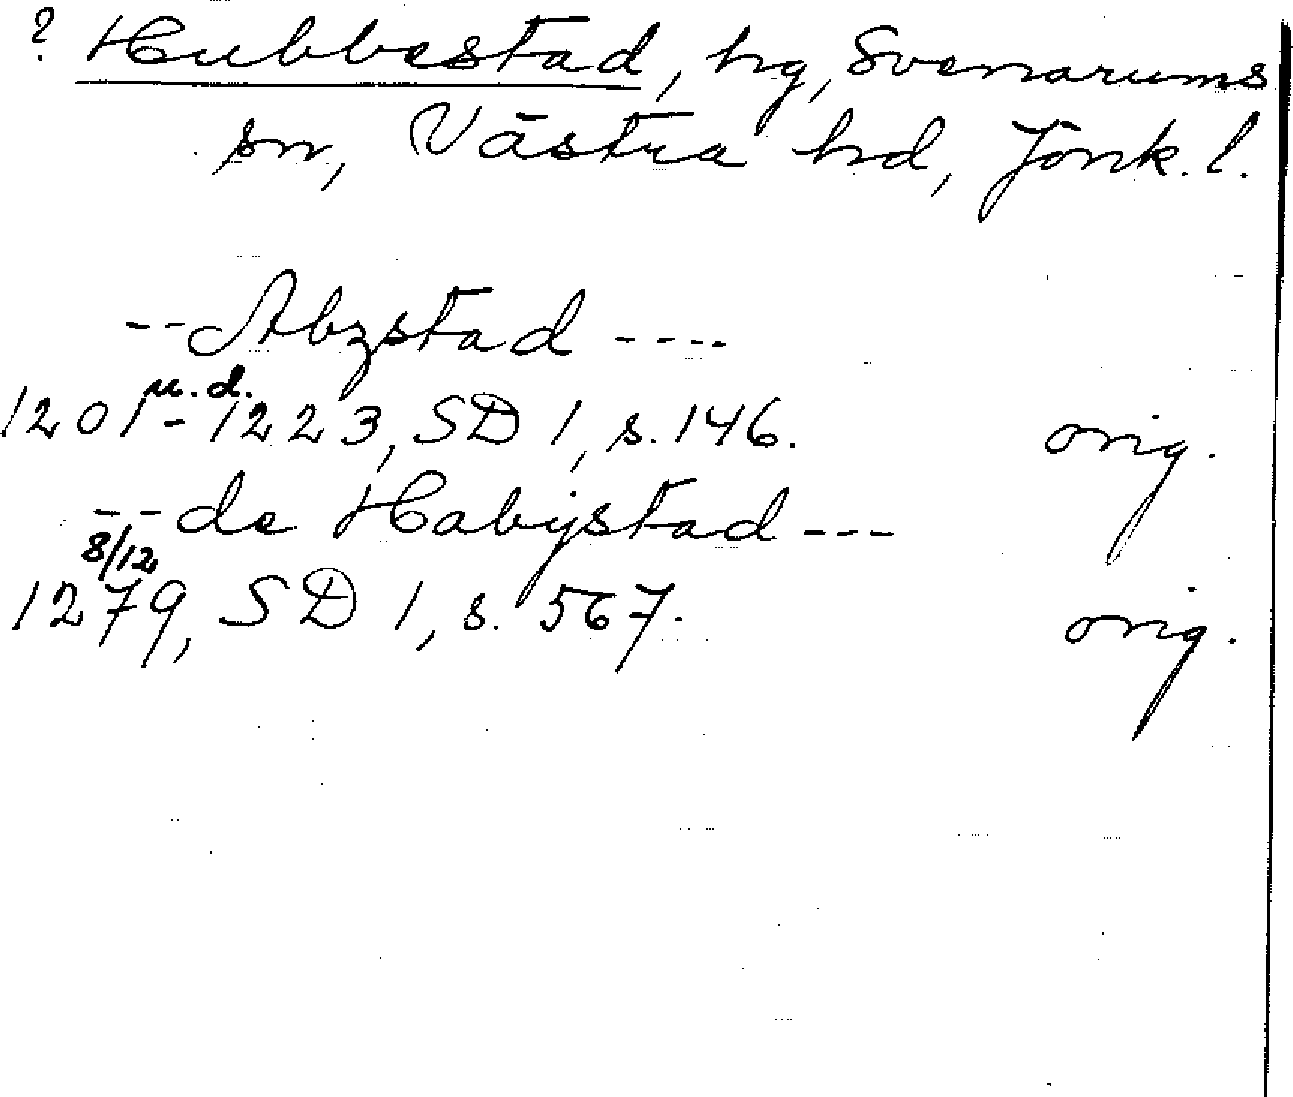 ? Hubbestad, hg, Svenarums
sn, Västra hd, Jönk. l.
-- Abzstad ----
u. d.
1201 - 1223, SD 1, s. 146. orig.
-- de Habijstad ---
8/12
1279, SD 1, s. 567. orig.